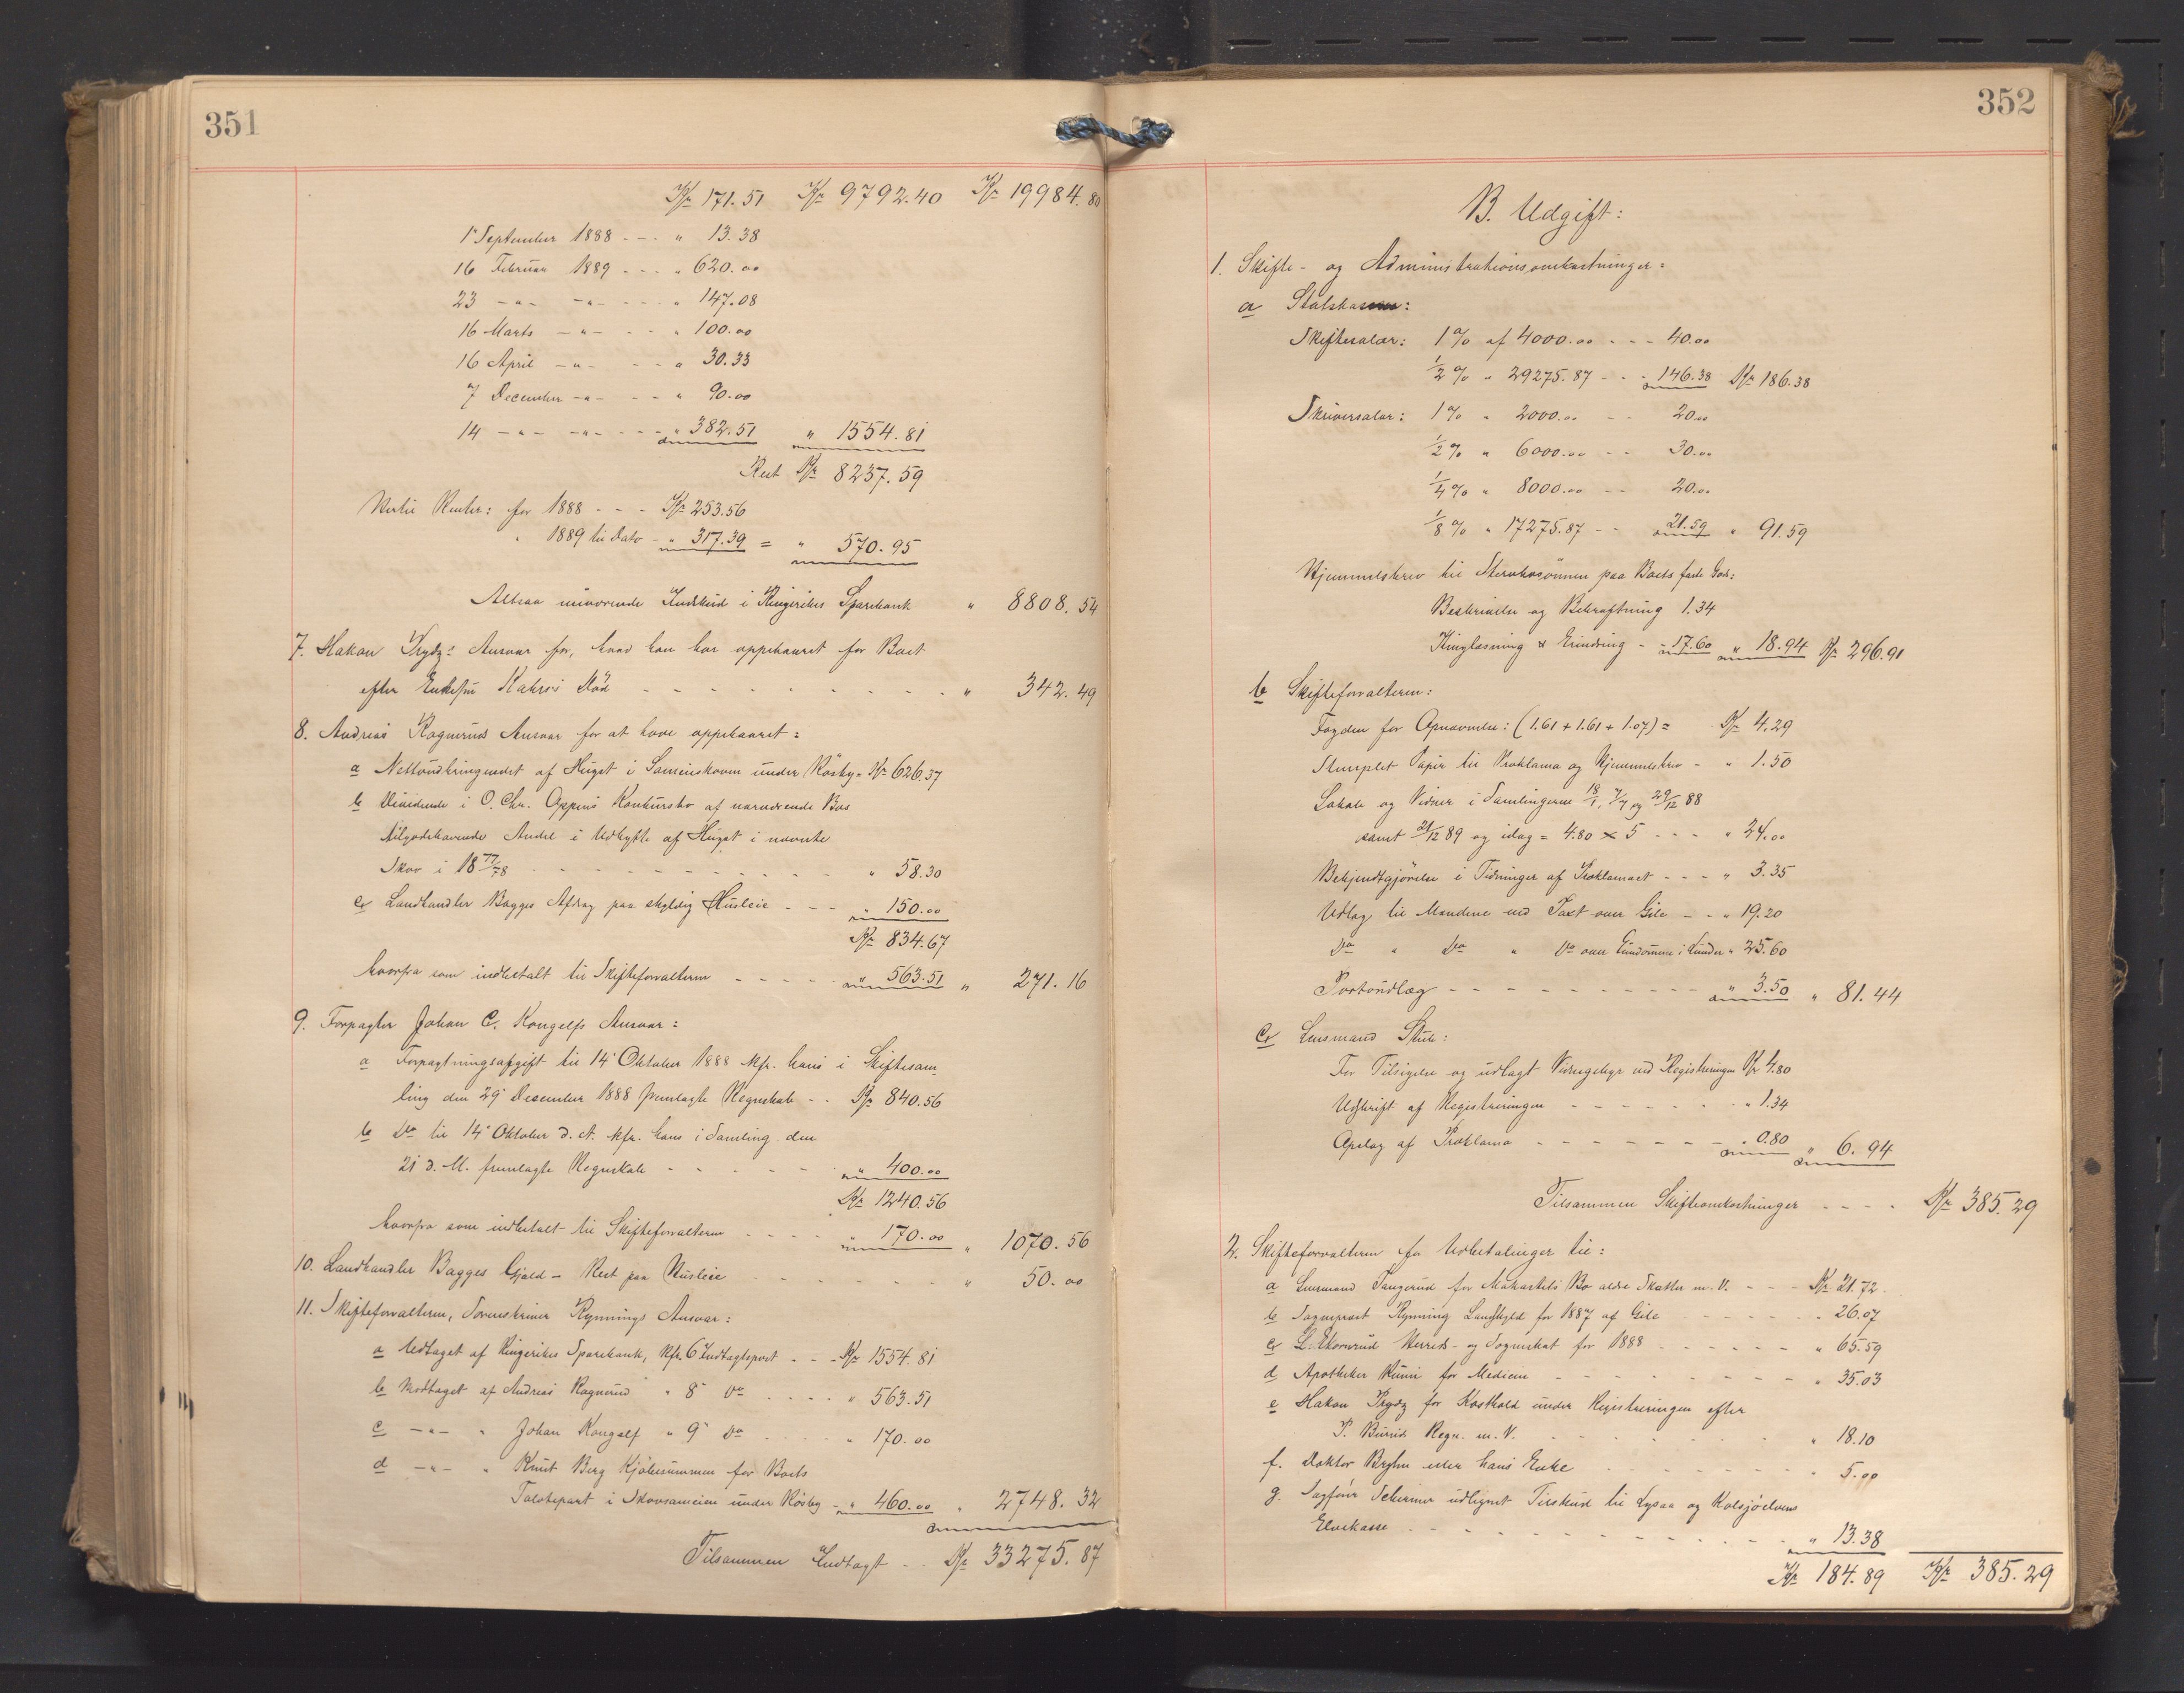 351
Kr 171.51 Kr 9792.40 Kr 19984.80
1 September 1888 - - - " 13.38
16 Februar 1889 - - - " 620.00
23 -"- -"- - - - " 147.08
16 Marts -"- - - " 100.00
16 April -"- - - " 30.33
7 December -"- - - " 90.00
14 -"- -"- - - - " 382.51 " 1554.81
Rest Kr 8237.59
Renter: for 1888 - - - Kr 253.56
" 1889 til Dato - " 317.39 = " 570.95
Altsaa nuværende Indskud i Ringerikes Sparebank " 8808.54
7. Hakon Trygs Ansvar for, hvad han har oppebaaret for Boet
efter Enkefru Kahrs's Död - - - - " 342.49
8. Andreas Ragnruds Ansvar for at have oppebaaret:
a Nettoudbringendet af Huget i Sameieskoven under Rösby = Kr 626.37
b Dividende i O. Chr. Oppens Konkursbo af nærværende Bos
tilgodehavende Andel i Udbytte af Huget i nævnte
Skov i 18 77/78 - - - - " 58.30
c Landhandler Bagges Afdrag paa skyldig Husleie - - - " 150.00
Kr 834.67
hvorfra som indbetalt til Skifteforvalteren - - - - " 563.51 " 271.16
9. Forpagter Johan C. Kongelfs Ansvar:
a Forpagtningsafgift til 14 Oktober 1888 kfr. hans i Skiftesam
ling den 29 December 1888 fremlagte Regnskab - - Kr 840.56
b Do til 14 Oktober d. A. kfr. hans i Samling den
21 d. M. fremlagte Regnskab - - - - " 400.00
Kr 1240.56
hvorfra som indbetalt til Skifteforvalteren - - - - " 170.00 " 1070.56
10. Landhandler Bagges Gjæld - Rest paa Husleie - - - - " 50.00
11. Skifteforvalteren, Sorenskriver Rynnings Ansvar:
a Udtaget af Ringerikes Sparebank, kfr. 6 Indtægtspost - - - Kr 1554.81
b Modtaget af Andreas Ragnrud " 8 do - - - - " 563.51
c -"- " Johan Kongelf " 9 do - - - - " 170.00
d -"- " Knut Berg Kjöbesummen for Boets
Part i Skovsameiet under Rösby - " 460.00 " 2748.32
Tilsammen Indtægt - - Kr 33275.87
352
B. Udgift:
1. Skifte- og Administrationsomkostninger:
a Statskassen:
Skiftesalær: 1 % af 4000.00 - - - 40.00
1/2 % " 29275.87 - - - 146.38 Kr 186.38
Skriversalær: 1 % " 2000.00 - - 20.00
1/2 % " 6000.00 - - 30.00
1/4 % " 8000.00 - - 20.00
1/8 % " 17275.87 - - 21.59 " 91.59
Hjemmelsbrev til Stervbosönnen paa Boets faste Gods:
Beskrivelse og Bekræftning 1.34
Thinglæsning & Erindring - - 17.60 " 18.94 Kr 296.91
b Skifteforvalteren:
Fogden for Opnævnelse: (1.61 + 1.61 + 1.07) = Kr 4.29
Stemplet Papir til Proklama og Hjemmelsbrev - " 1.50
Lokale og Vidner i Samlingerne 18/1, 7/7 og 29/12 88
samt 21/12 89 og idag = 4.80 x 5 - - - " 24.00
Bekjendtgjörelse i Tidninger af Proklamaet - - - " 3.35
Udlæg til Mændene ved Taxt over Gile - - " 19.20
Do " Do " Do over Eiendommene i Lunder " 25.60
Portoudlæg - - - - " 3.50 " 81.44
c Lensmand Stub:
For Tilsigelse og udlagt Vidnegebyr ved Registreringen Kr 4.80
Udskrift af Registreringen - - - - " 1.34
Opslag af Proklama - - - - " 0.80 " 6.94
Tilsammen Skifteomkostninger - - - - Kr 385.29
2. Skifteforvalteren for Udbetalinger til:
a Lensmand Tangerud for Bo ældre Skatter m. V. - - - Kr 21.72
b Sogneprest Rynning Landskyld for 1887 af Gile - - - - " 26.07
c L. Skovrud Herreds- og Sogneskat for 1888 - - - - " 65.59
d Apotheker for Medicin - - - - " 35.03
e Hakon Tryg for Kosthold under Registreringen efter
Regn. m. V. - - - - " 18.10
f. Doktor Bryhn eller hans Enke - - - - " 5.00
g. Sagförer Schirmer udlignet Tilskud til Sogna og Kolsjöelvens
Elvekasse - - - - " 13.38
Kr 184.89 Kr 385.29